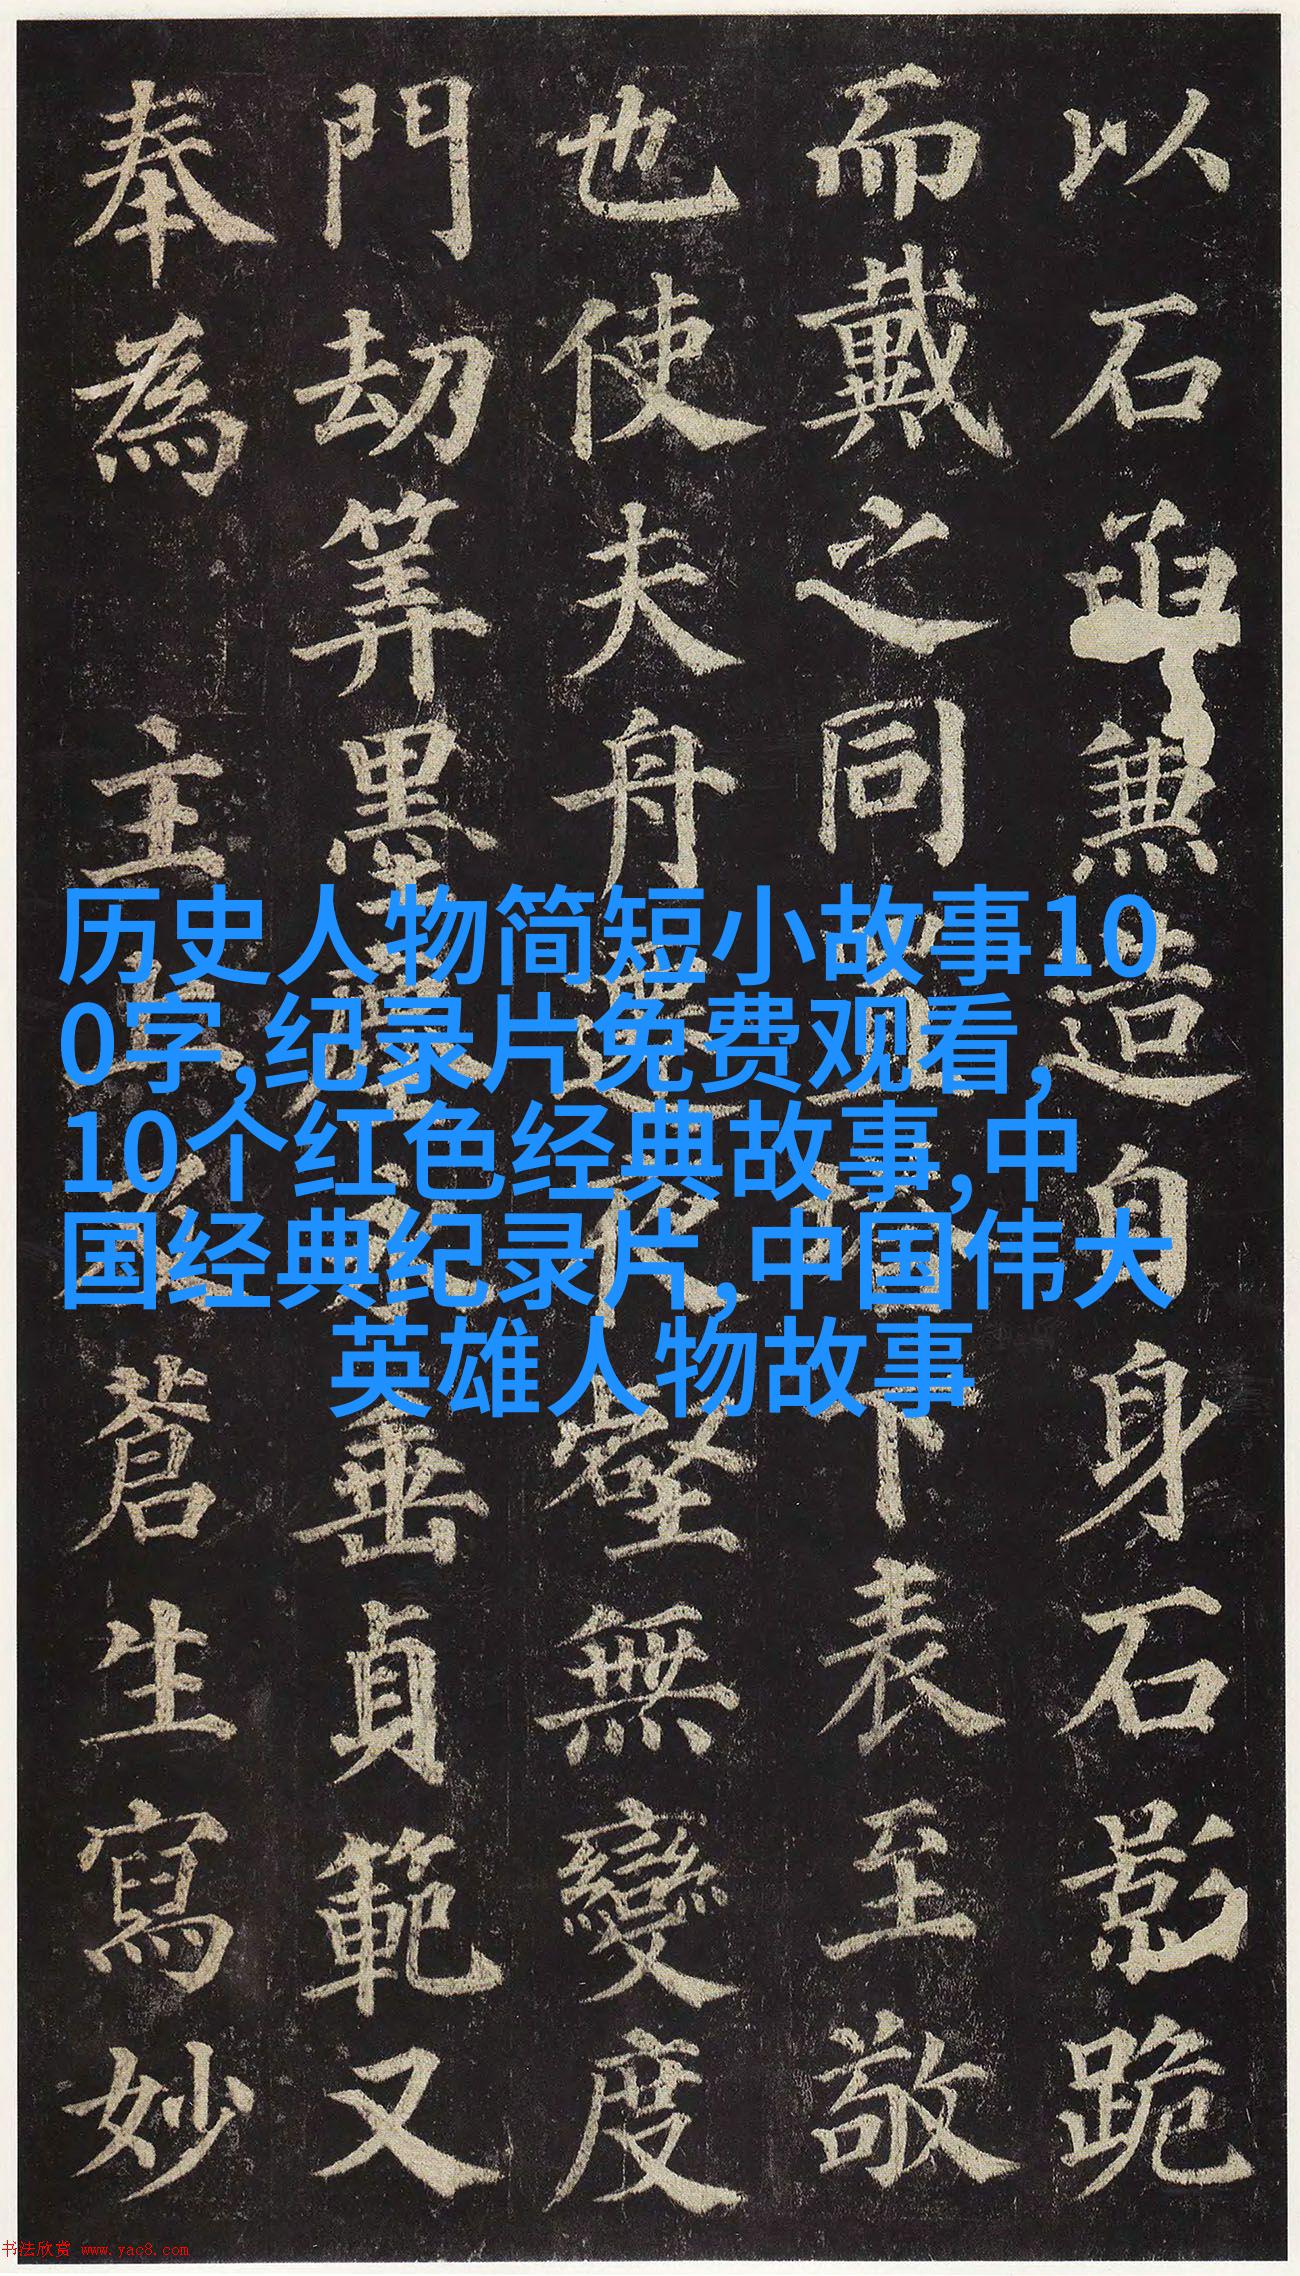 以石兼造自身石影跪
而戴之同下表至敬
也使夫舟壑無變度
門劫筭墨垂貞範又
奉為主蒼生寫妙
历史人物简短小故事10
0字,纪录片免费观看,
10个红色经典故事,中
国经典纪录片,中国伟大
英雄人物故事
书法欣赏 www.yac8.com